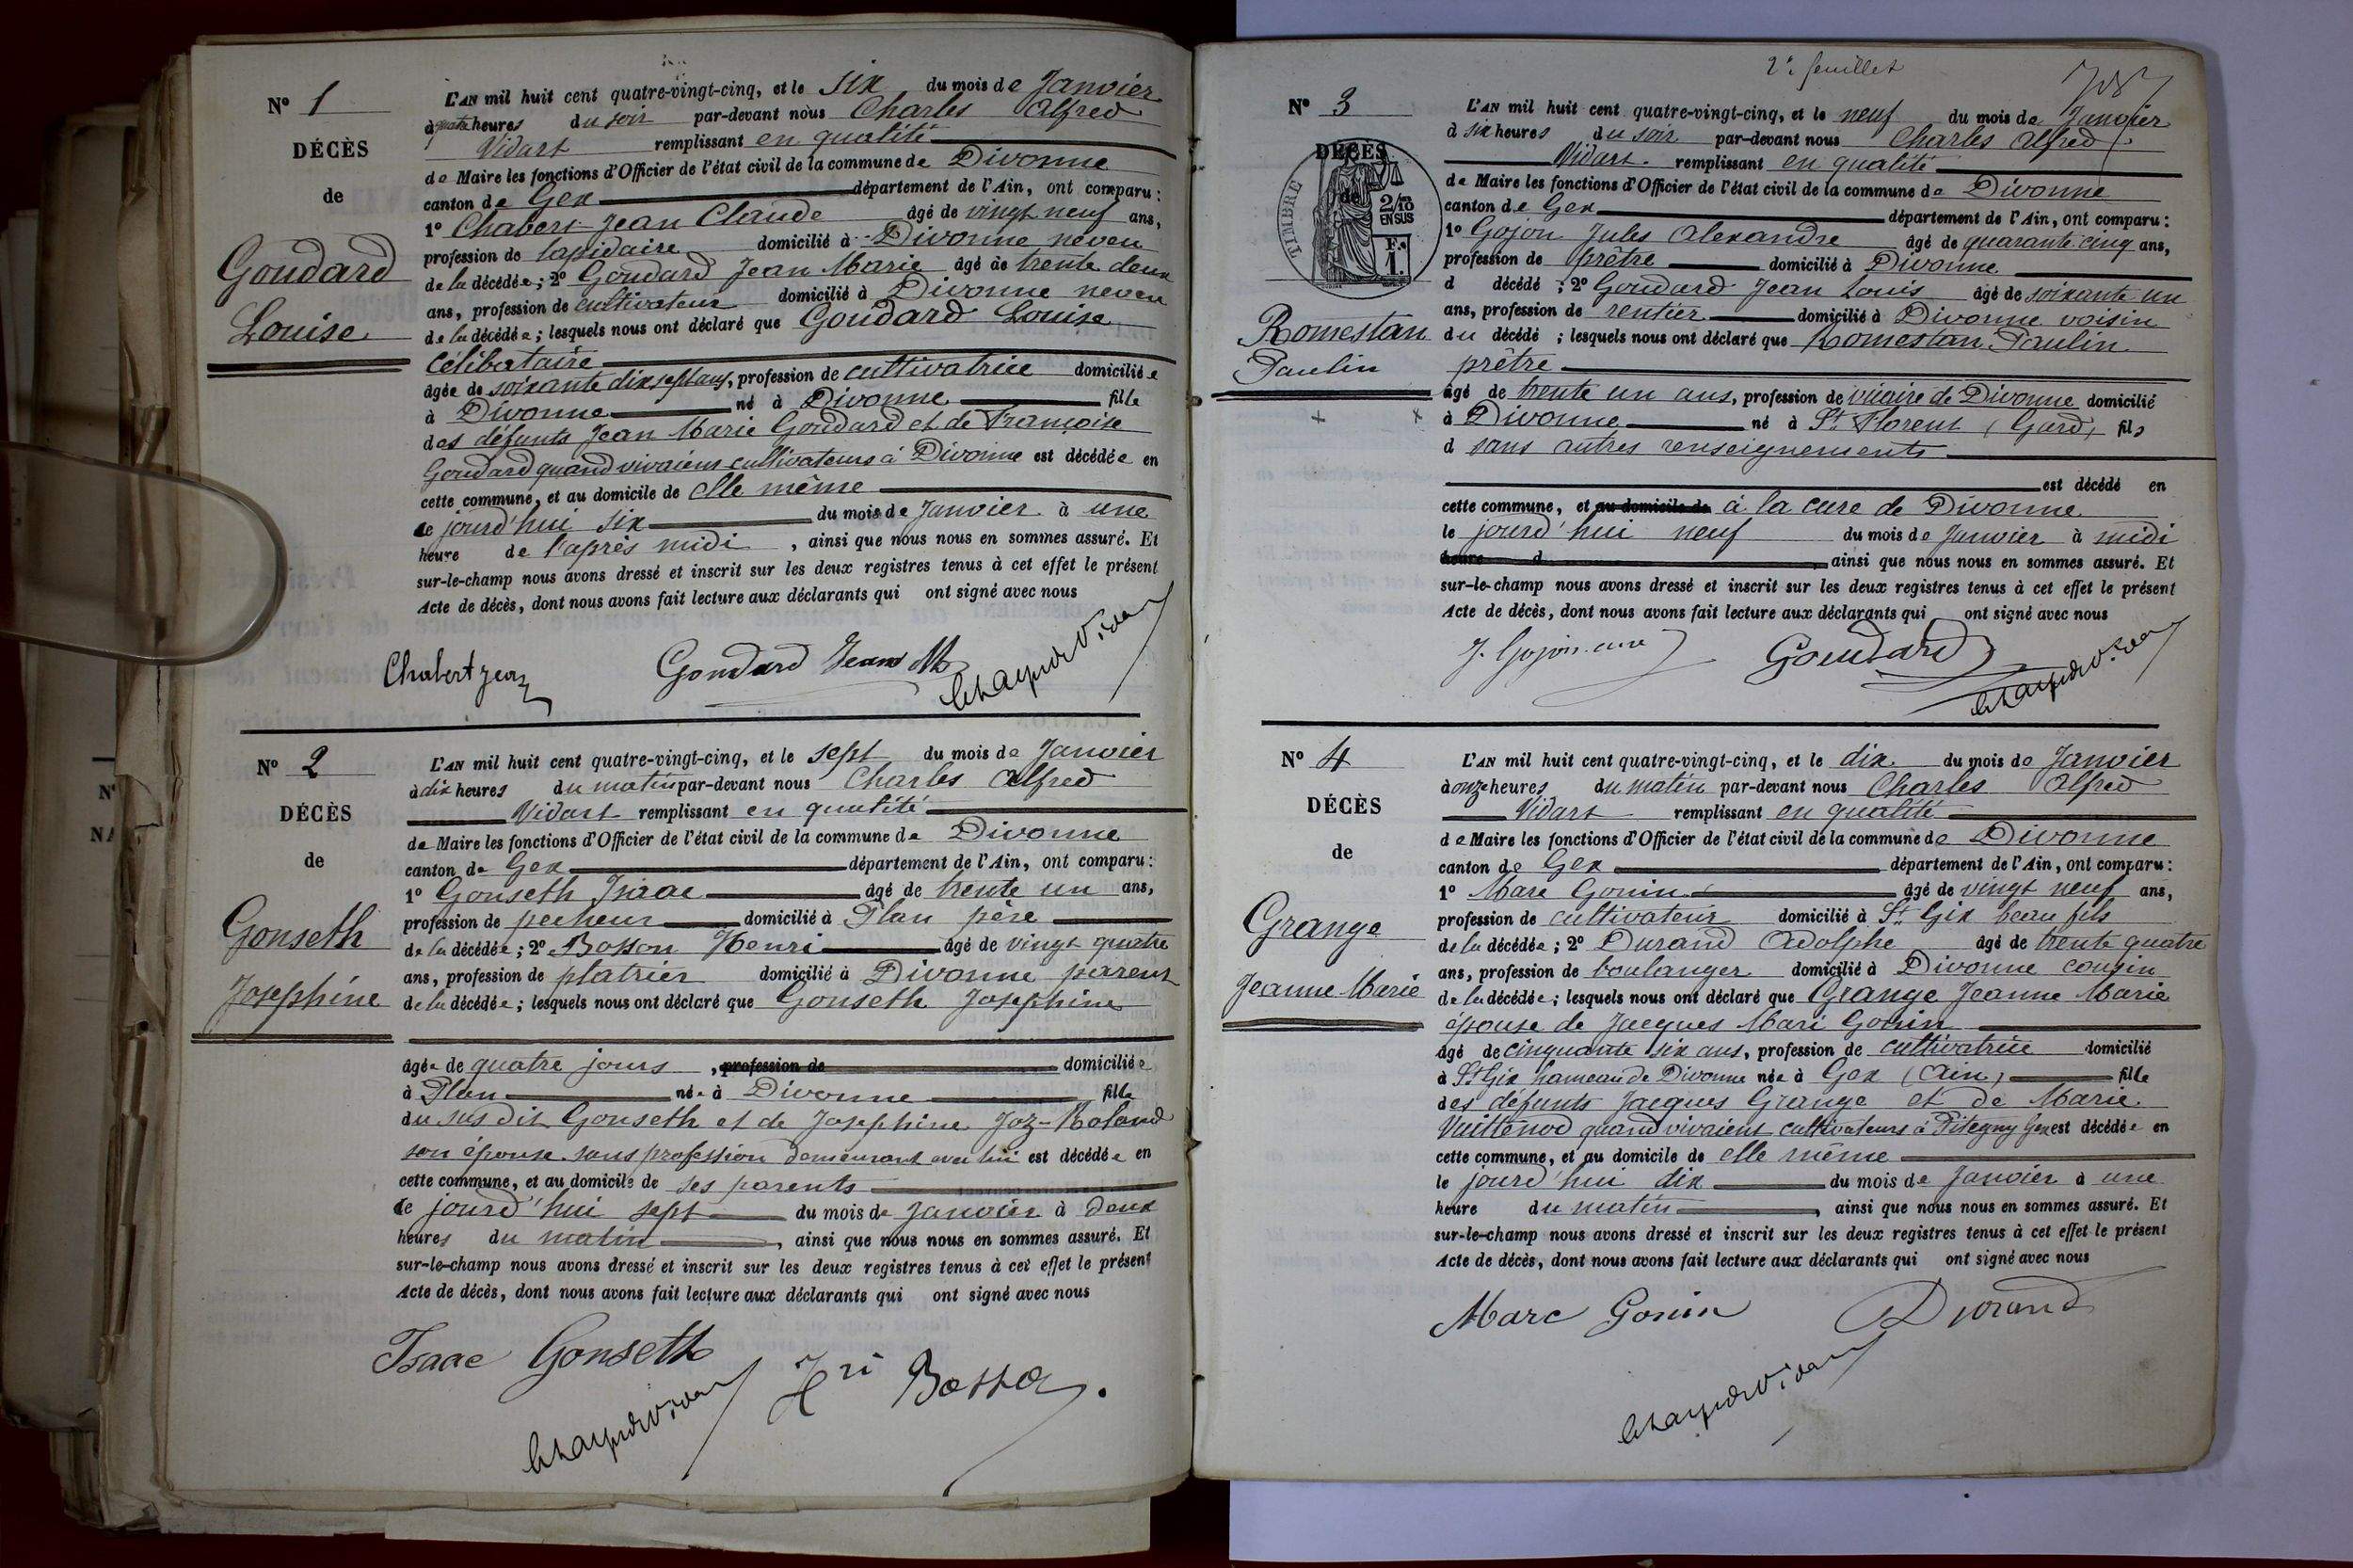 N° 1
DÉCÈS
de
Goudard
Louise
L'AN mil huit cent quatre-vingt-cinq, et le six du mois de Janvier
à quatre heures du soir par-devant nous Charles Alfred
Vidart remplissant en qualité
de Maire les fonctions d'Officier de l'état civil de la commune de Divonne
canton de Gex département de l'Ain, ont comparu :
1° Chabert Jean Claude âgé de vingt neuf ans,
profession de lapidaire domicilié à Divonne neveu
de la décédée ; 2° Goudard Jean Marie âgé de trente deux
ans, profession de cultivateur domicilié à Divonne neveu
de la décédée ; lesquels nous ont déclaré que Goudard Louise
Célibataire
âgée de soixante dix sept ans, profession de cultivatrice domiciliée
à Divonne né à Divonne fille
des défunts Jean Marie Goudard et de Françoise
Goudard quand vivaient cultivateurs à Divonne est décédée en
cette commune, et au domicile de elle même
le jourd'hui six du mois de Janvier à une
heure de l'après midi , ainsi que nous nous en sommes assuré. Et
sur-le-champ nous avons dressé et inscrit sur les deux registres tenus à cet effet le présent
Acte de décès, dont nous avons fait lecture aux déclarants qui ont signé avec nous
Chabert Jean Goudard Jean M
N° 2
DÉCÈS
de
Gonseth
Josephine
L'AN mil huit cent quatre-vingt-cinq, et le sept du mois de Janvier
à dix heures du matin par-devant nous Charles Alfred
Vidart remplissant en qualité
de Maire les fonctions d'Officier de l'état civil de la commune de Divonne
canton de Gex département de l'Ain, ont comparu :
1° Gonseth Isaac âgé de trente un ans,
profession de pecheur domicilié à Plan père
de la décédée ; 2° Bosson Henri âgé de vingt quatre
ans, profession de platrier domicilié à Divonne parent
de la décédée ; lesquels nous ont déclaré que Gonseth Josephine
âgée de quatre jours , profession de domiciliée
à Plan née à Divonne fille
du sus dit Gonseth et de Josephine Joz-Roland
son épouse sans profession demeurant avec lui est décédée en
cette commune, et au domicile de ses parents
le jourd'hui sept du mois de Janvier à deux
heures du matin , ainsi que nous nous en sommes assuré. Et
sur-le-champ nous avons dressé et inscrit sur les deux registres tenus à cet effet le présent
Acte de décès, dont nous avons fait lecture aux déclarants qui ont signé avec nous
Isaac Gonseth
Hri Bosson
2e feuillet
N° 3
DÉCÈS
de
TIMBRE
2/10
EN SUS
Romestan
Paulin
L'AN mil huit cent quatre-vingt-cinq, et le neuf du mois de Janvier
à six heures du soir par-devant nous Charles Alfred
Vidart remplissant en qualité
de Maire les fonctions d'Officier de l'état civil de la commune de Divonne
canton de Gex département de l'Ain, ont comparu :
1° Gojon Jules Alexandre âgé de quarante cinq ans,
profession de prêtre domicilié à Divonne
d décédé ; 2° Goudard Jean Louis âgé de soixante un
ans, profession de rentier domicilié à Divonne voisin
du décédé ; lesquels nous ont déclaré que Romestan Paulin
prêtre
âgé de trente un ans, profession de vicaire de Divonne domicilié
à Divonne né à St Florent (Gard) fils
d sans autres renseignements
est décédé en
cette commune, et au domicile de à la cure de Divonne
le jourd'hui neuf du mois de Janvier à midi
heure d , ainsi que nous nous en sommes assuré. Et
sur-le-champ nous avons dressé et inscrit sur les deux registres tenus à cet effet le présent
Acte de décès, dont nous avons fait lecture aux déclarants qui ont signé avec nous
J. Gojon curé Goudard
N° 4
DÉCÈS
de
Grange
Jeanne Marie
L'AN mil huit cent quatre-vingt-cinq, et le dix du mois de Janvier
à onze heures du matin par-devant nous Charles Alfred
Vidart remplissant en qualité
de Maire les fonctions d'Officier de l'état civil de la commune de Divonne
canton de Gex département de l'Ain, ont comparu :
1° Marc Gonin âgé de vingt neuf ans,
profession de cultivateur domicilié à St Gix beau fils
de la décédée ; 2° Durand Adolphe âgé de trente quatre
ans, profession de boulanger domicilié à Divonne cousin
de la décédée ; lesquels nous ont déclaré que Grange Jeanne Marie
épouse de Jacques Mari Gonin
âgé de cinquante six ans, profession de cultivatrice domicilié
à St Gix hameau de Divonne née à Gex (Ain) fille
des défunts Jacques Grange et de Marie
Vuittenod quand vivaient cultivateurs à Pitegny Gex est décédée en
cette commune, et au domicile de elle même
le jourd'hui dix du mois de Janvier à une
heure du matin , ainsi que nous nous en sommes assuré. Et
sur-le-champ nous avons dressé et inscrit sur les deux registres tenus à cet effet le présent
Acte de décès, dont nous avons fait lecture aux déclarants qui ont signé avec nous
Marc Gonin Durand